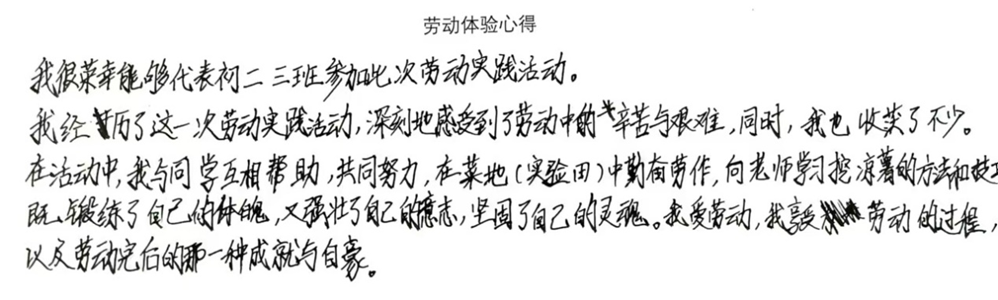 劳动体验心得
我很荣幸能够代表初二三班参加此次劳动实践活动。
我经历了这一次劳动实践活动,深刻地感受到了劳动中的辛苦与艰难,同时,我也收获了不少。
在活动中,我与同学互相帮助,共同努力,在菜地(实验田)中勤奋劳作,向老师学习挖凉薯的方法和技
既锻练了自己的体魄,又强壮了自己的意志,坚固了自己的灵魂。我爱劳动,我享受劳动的过程,
以及劳动完后的那一种成就与自豪。